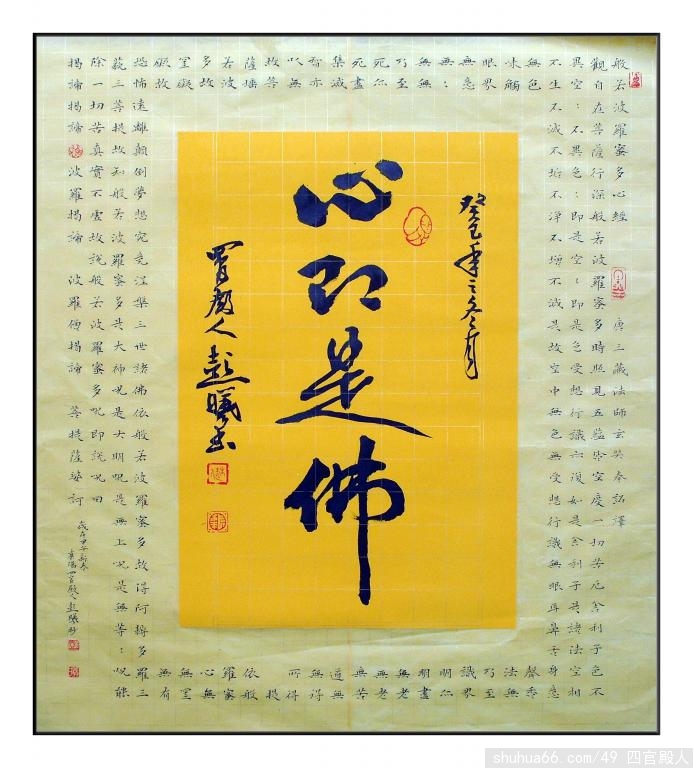 般若波羅蜜多心經 唐三藏法師玄奘奉詔譯
觀自在菩薩行深般若波羅蜜多時照見五蘊皆空度一切苦厄舍利子色不
異空：不異色：即是空：即是色受想行識亦復如是舍利子是諸法空相
不生不滅不垢不淨不增不減是故空中無色無受想行識無眼耳鼻舌身意
無色聲香
味觸法無
眼界乃至
無意識界
無：明亦
無無明盡
乃至無老
死亦無老
死盡無苦
集滅道無
智亦無得
以無所得
故菩提
薩埵依般
若波羅蜜
多故心無
罣礙無罣
礙故無有
恐怖遠離顛倒夢想究竟涅槃三世諸佛依般若波羅蜜多故得阿耨多羅三
藐三菩提故知般若波羅蜜多是大神咒是大明咒是無上咒是無等：咒能
除一切苦真實不虛故說般若波羅蜜多咒即說咒曰
揭諦揭諦 波羅揭諦 波羅僧揭諦 菩提薩婆訶
歲在甲午新春
四官殿人彭曦抄
癸巳年之冬月
心即是佛
四官殿人彭曦書
shuhua66.com/49 四官殿人